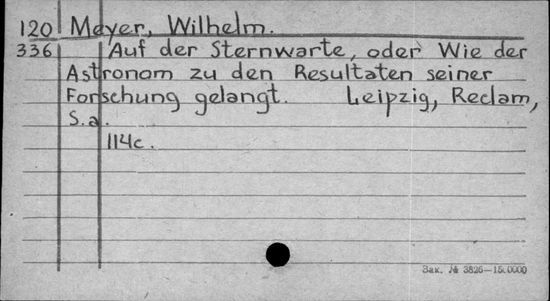 120 Meyer, Wilhelm.
336 Auf der Sternwarte, oder Wie der
Astronom zu den Resultaten seiner
Forschung gelangt. Leipzig, Reclam,
S.a.
114c.
Зак. № 3826—15.0000